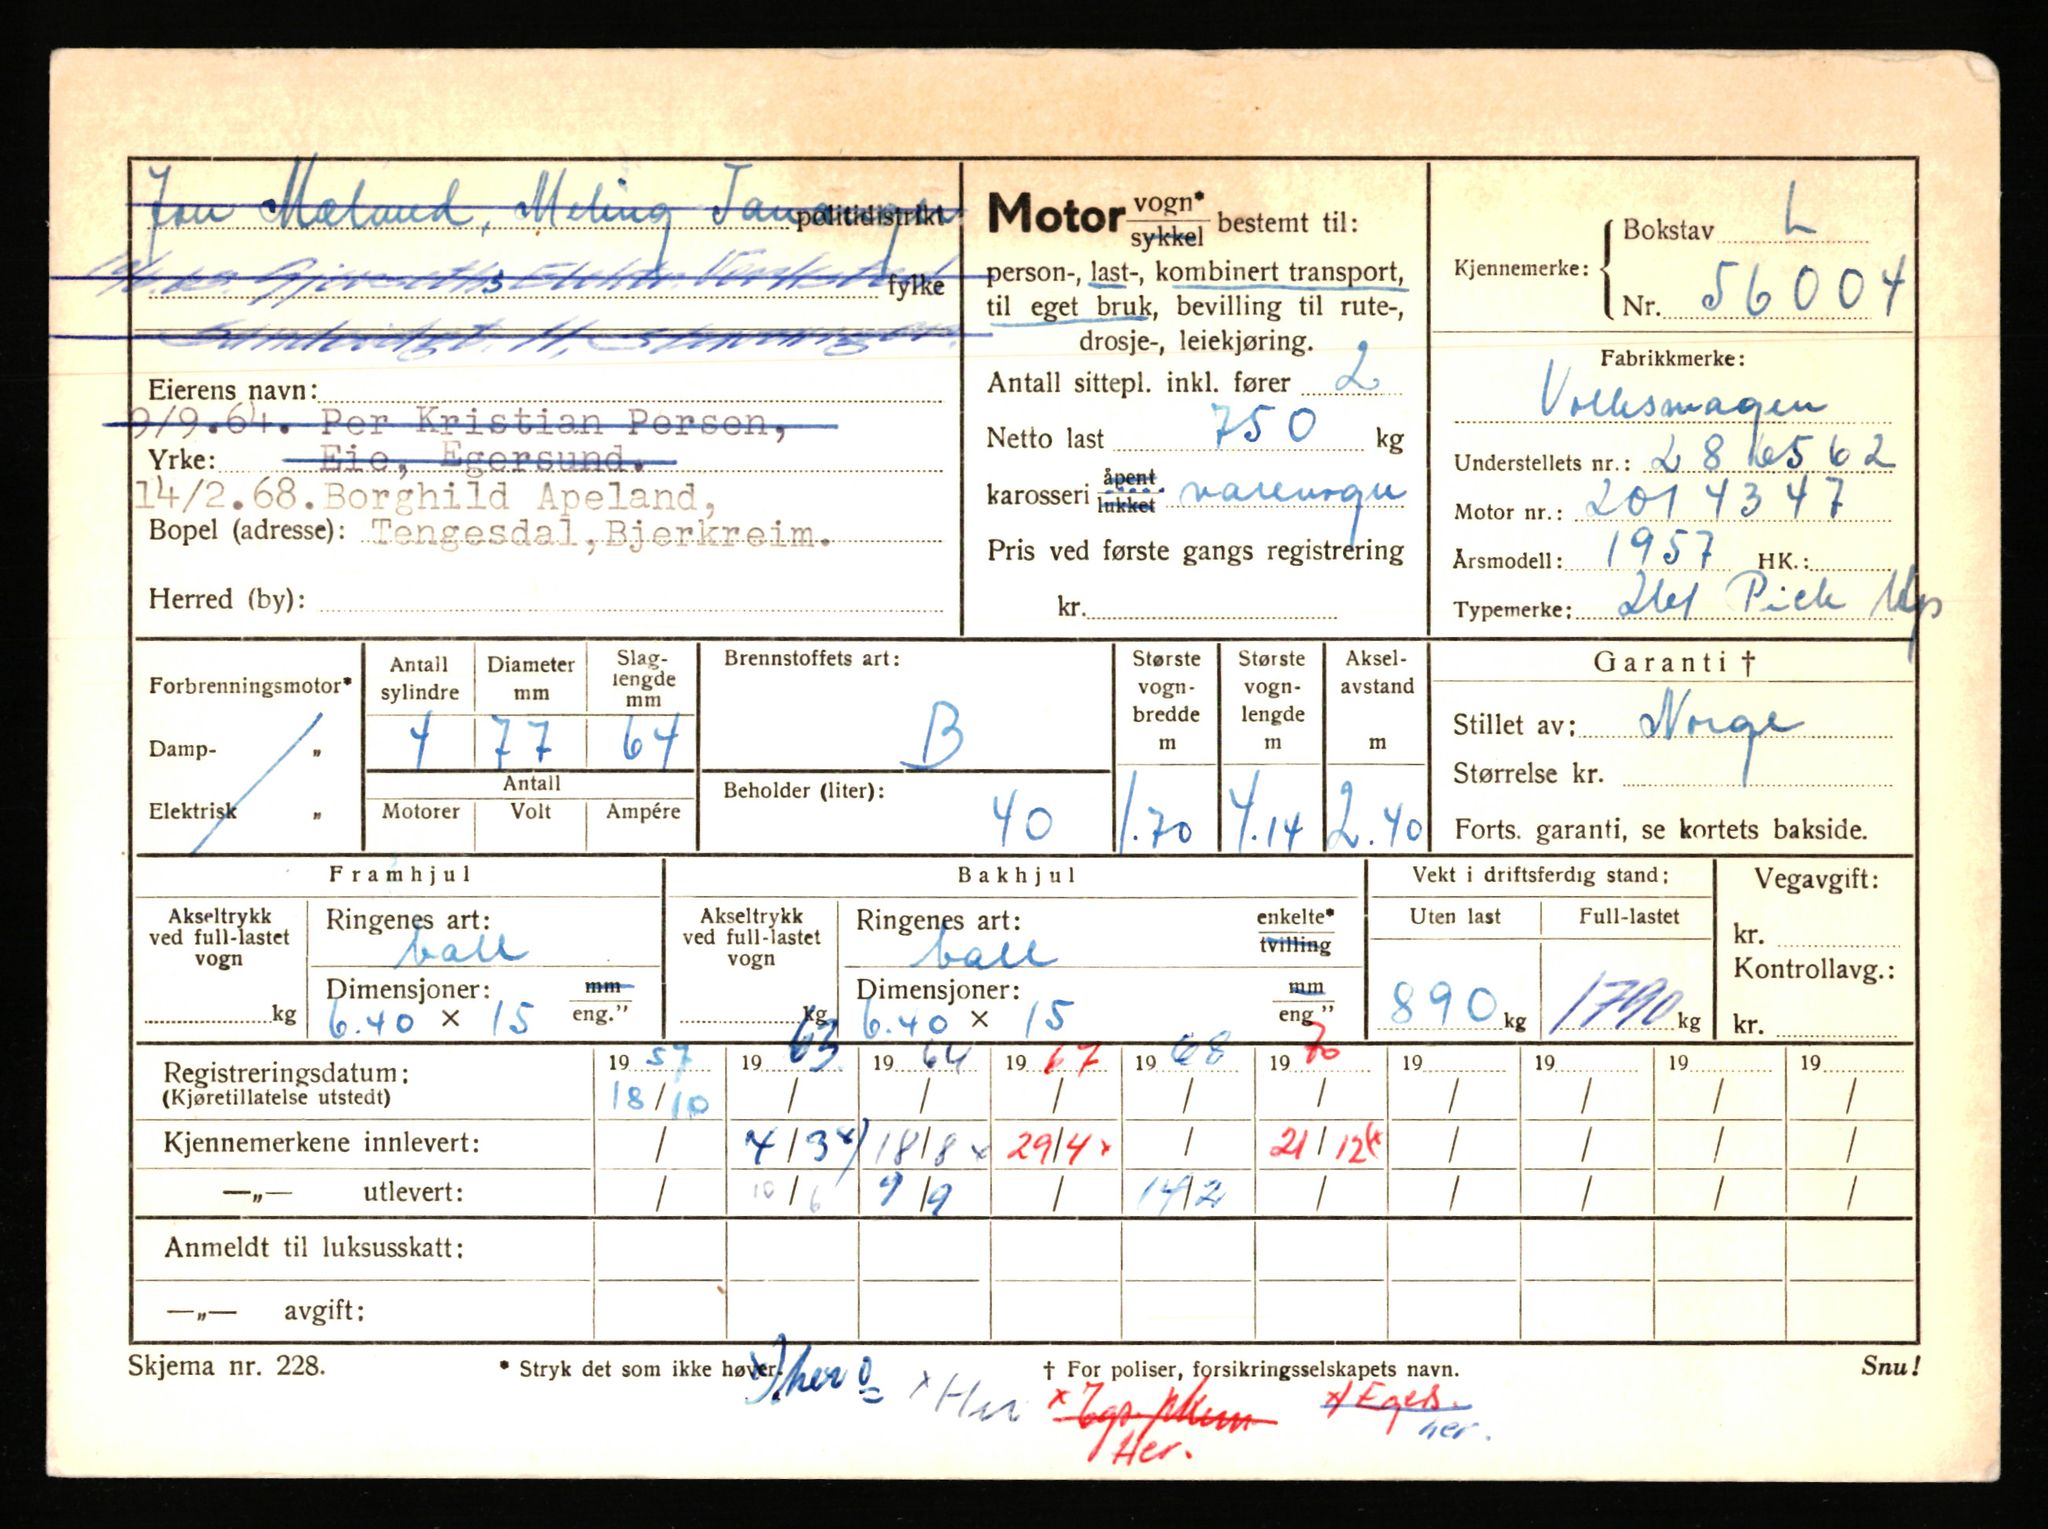 Jon Mæland, Meling Tananger politidistrikt
s fylke
Stavanger.
Eierens navn:
9/9.64. Per Kristian Persen,
Yrke: Eie, Egersund.
14/2.68. Borghild Apeland,
Bopel (adresse): Tengesdal, Bjerkreim.
Herred (by):
Motor vogn* sykkel bestemt til:
person-, last-, kombinert transport,
til eget bruk, bevilling til rute-,
drosje-, leiekjøring.
Antall sittepl. inkl. fører 2
Netto last 750 kg
karosseri åpent lukket varevogn
Pris ved første gangs registrering
kr.
Kjennemerke: Bokstav L
Nr. 56004
Fabrikkmerke:
Volkswagen
Understellets nr.: 286562
Motor nr.: 2014347
Årsmodell: 1957 HK.:
Typemerke: 261 Pick Up
Forbrenningsmotor*
Damp- „
Elektrisk „
Antall sylindre
4
Diameter mm
77
Slag- lengde mm
64
Antall
Motorer Volt Ampére
Brennstoffets art:
B
Beholder (liter):
40
Største vogn- bredde m
1.70
Største vogn- lengde m
4.14
Aksel- avstand m
2.40
Garanti †
Stillet av: Norge
Størrelse kr.
Forts. garanti, se kortets bakside.
Framhjul
Akseltrykk ved full-lastet vogn
kg
Ringenes art:
ball
Dimensjoner: mm eng."
6.40 × 15
Bakhjul
Akseltrykk ved full-lastet vogn
kg
Ringenes art: enkelte* tvilling
ball
Dimensjoner: mm eng"
6.40 × 15
Vekt i driftsferdig stand:
Uten last Full-lastet
890 kg 1790 kg
Vegavgift:
kr.
Kontrollavg.:
kr.
Registreringsdatum: 19 57 19 63 19 64 19 67 19 68 19 70 19 19 19 19
(Kjøretillatelse utstedt) 18/10 / / / / / / / / /
Kjennemerkene innlevert: / 4/3 x) 18/8 x 29/4 x / 21/12 x / / / /
—„— utlevert: / 10/6 9/9 / 14/2 / / / / /
Anmeldt til luksusskatt:
—„— avgift:
Skjema nr. 228. * Stryk det som ikke høver. † For poliser, forsikringsselskapets navn. Snu!
x) her x Her x x) Egers.
Her. her.